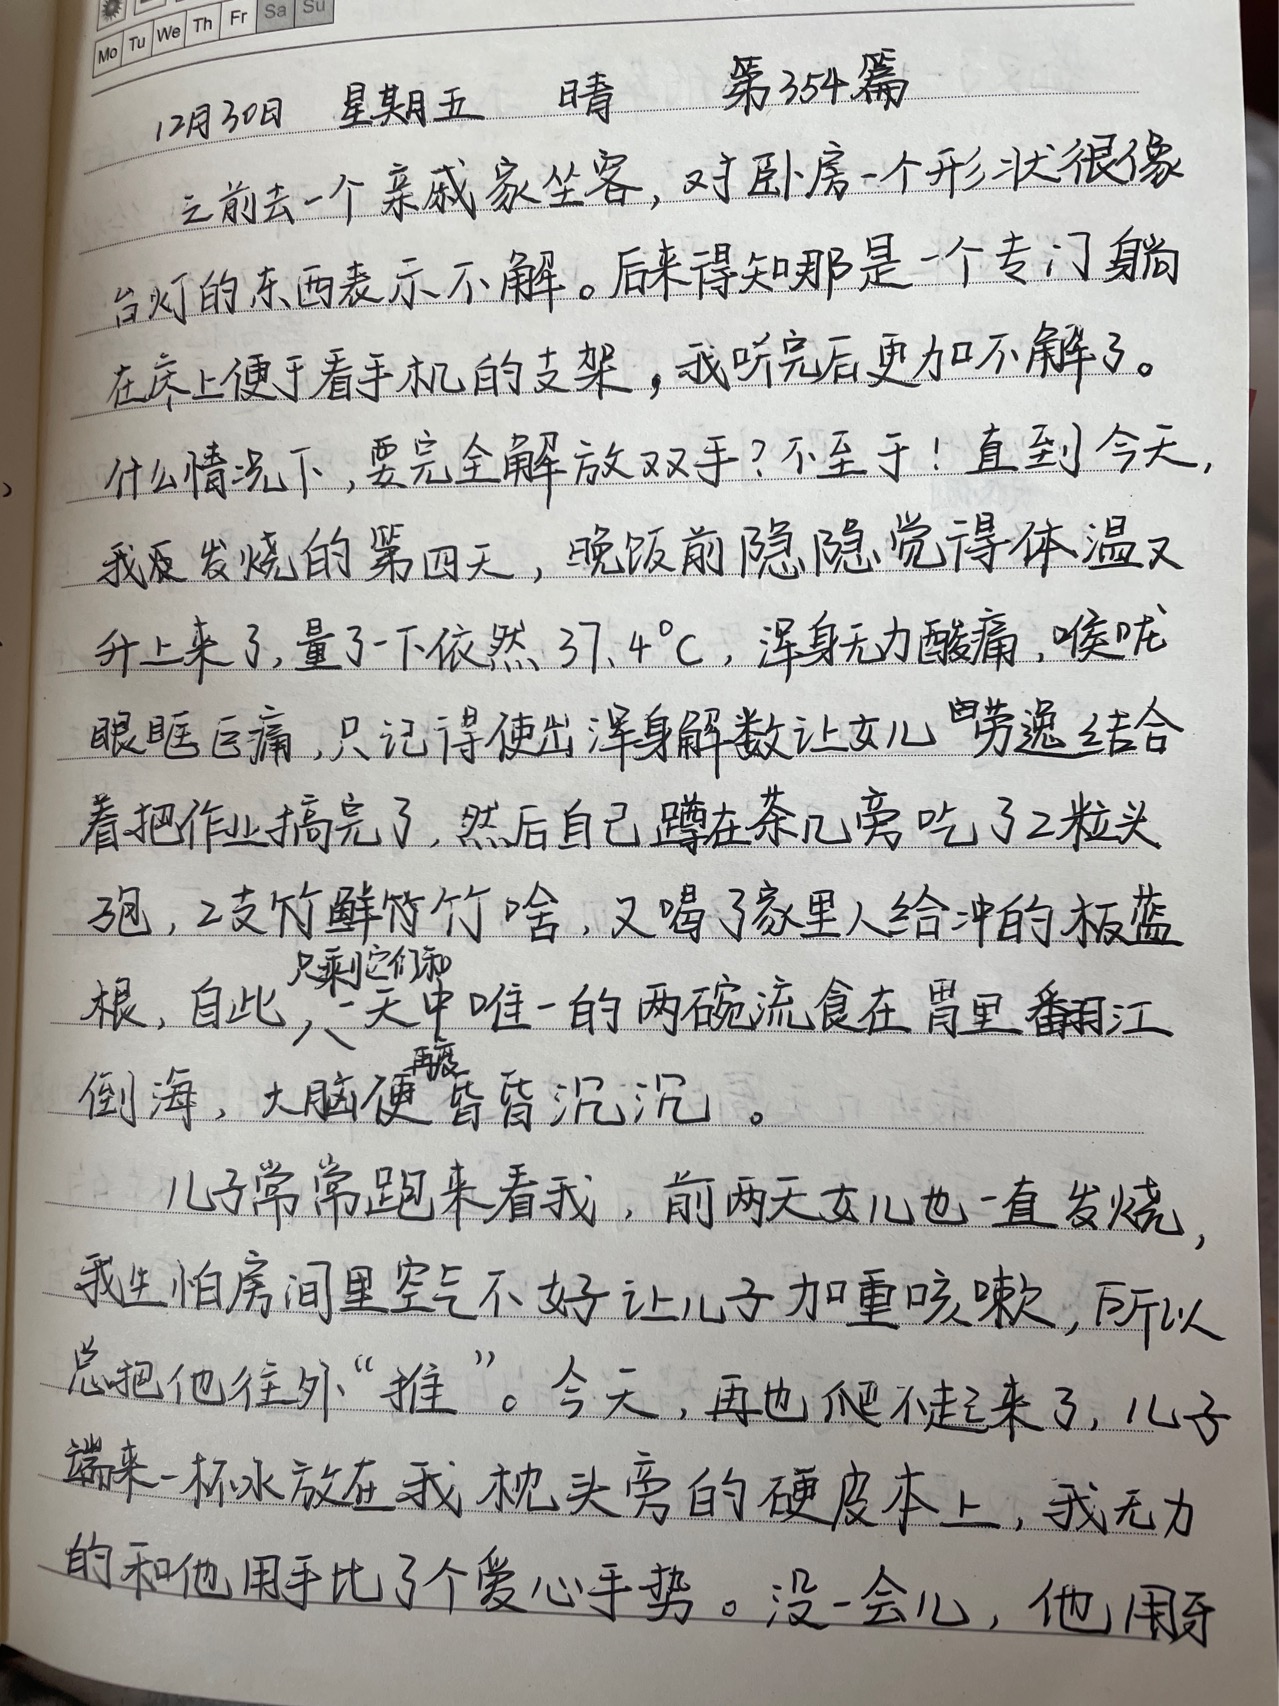 Mo Tu We Th Fr Sa Su
12月30日 星期五 晴 第354篇
之前去一个亲戚家坐客，对卧房一个形状很像
台灯的东西表示不解。后来得知那是一个专门躺
在床上便于看手机的支架，我听完后更加不解了。
什么情况下，要完全解放双手？不至于！直到今天，
我反发烧的第四天，晚饭前隐隐觉得体温又
升上来了，量了一下依然37.4℃，浑身无力酸痛，喉咙
眼眶巨痛，只记得使出浑身解数让女儿劳逸结合
着把作业搞完了，然后自己蹲在茶几旁吃了2粒头
孢，2支竹鲜竹竹啥，又喝了家里人给冲的板蓝
根，自此，只剩它们和一天中唯一的两碗流食在胃里翻江
倒海，大脑便再度昏昏沉沉。
儿子常常跑来看我，前两天女儿也一直发烧，
我生怕房间里空气不好让儿子加重咳嗽，所以
总把他往外“推”。今天，再也爬不起来了，儿子
端来一杯水放在我枕头旁的硬皮本上，我无力
的和他用手比了个爱心手势。没一会儿，他用牙